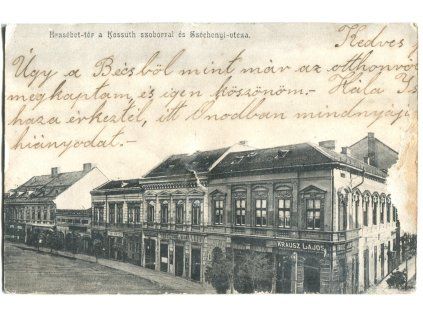 Erzsébet-tér a Kossuth szoborral és Széchenyi-utcza.
Kedves
Úgy a Bécsből mint már az otthonról
megkaptam, és igen köszönöm.- Hála Is
haza érkeztél, itt Ónodban mindnyáj
hiányodat.-
KRAUSZ LAJOS